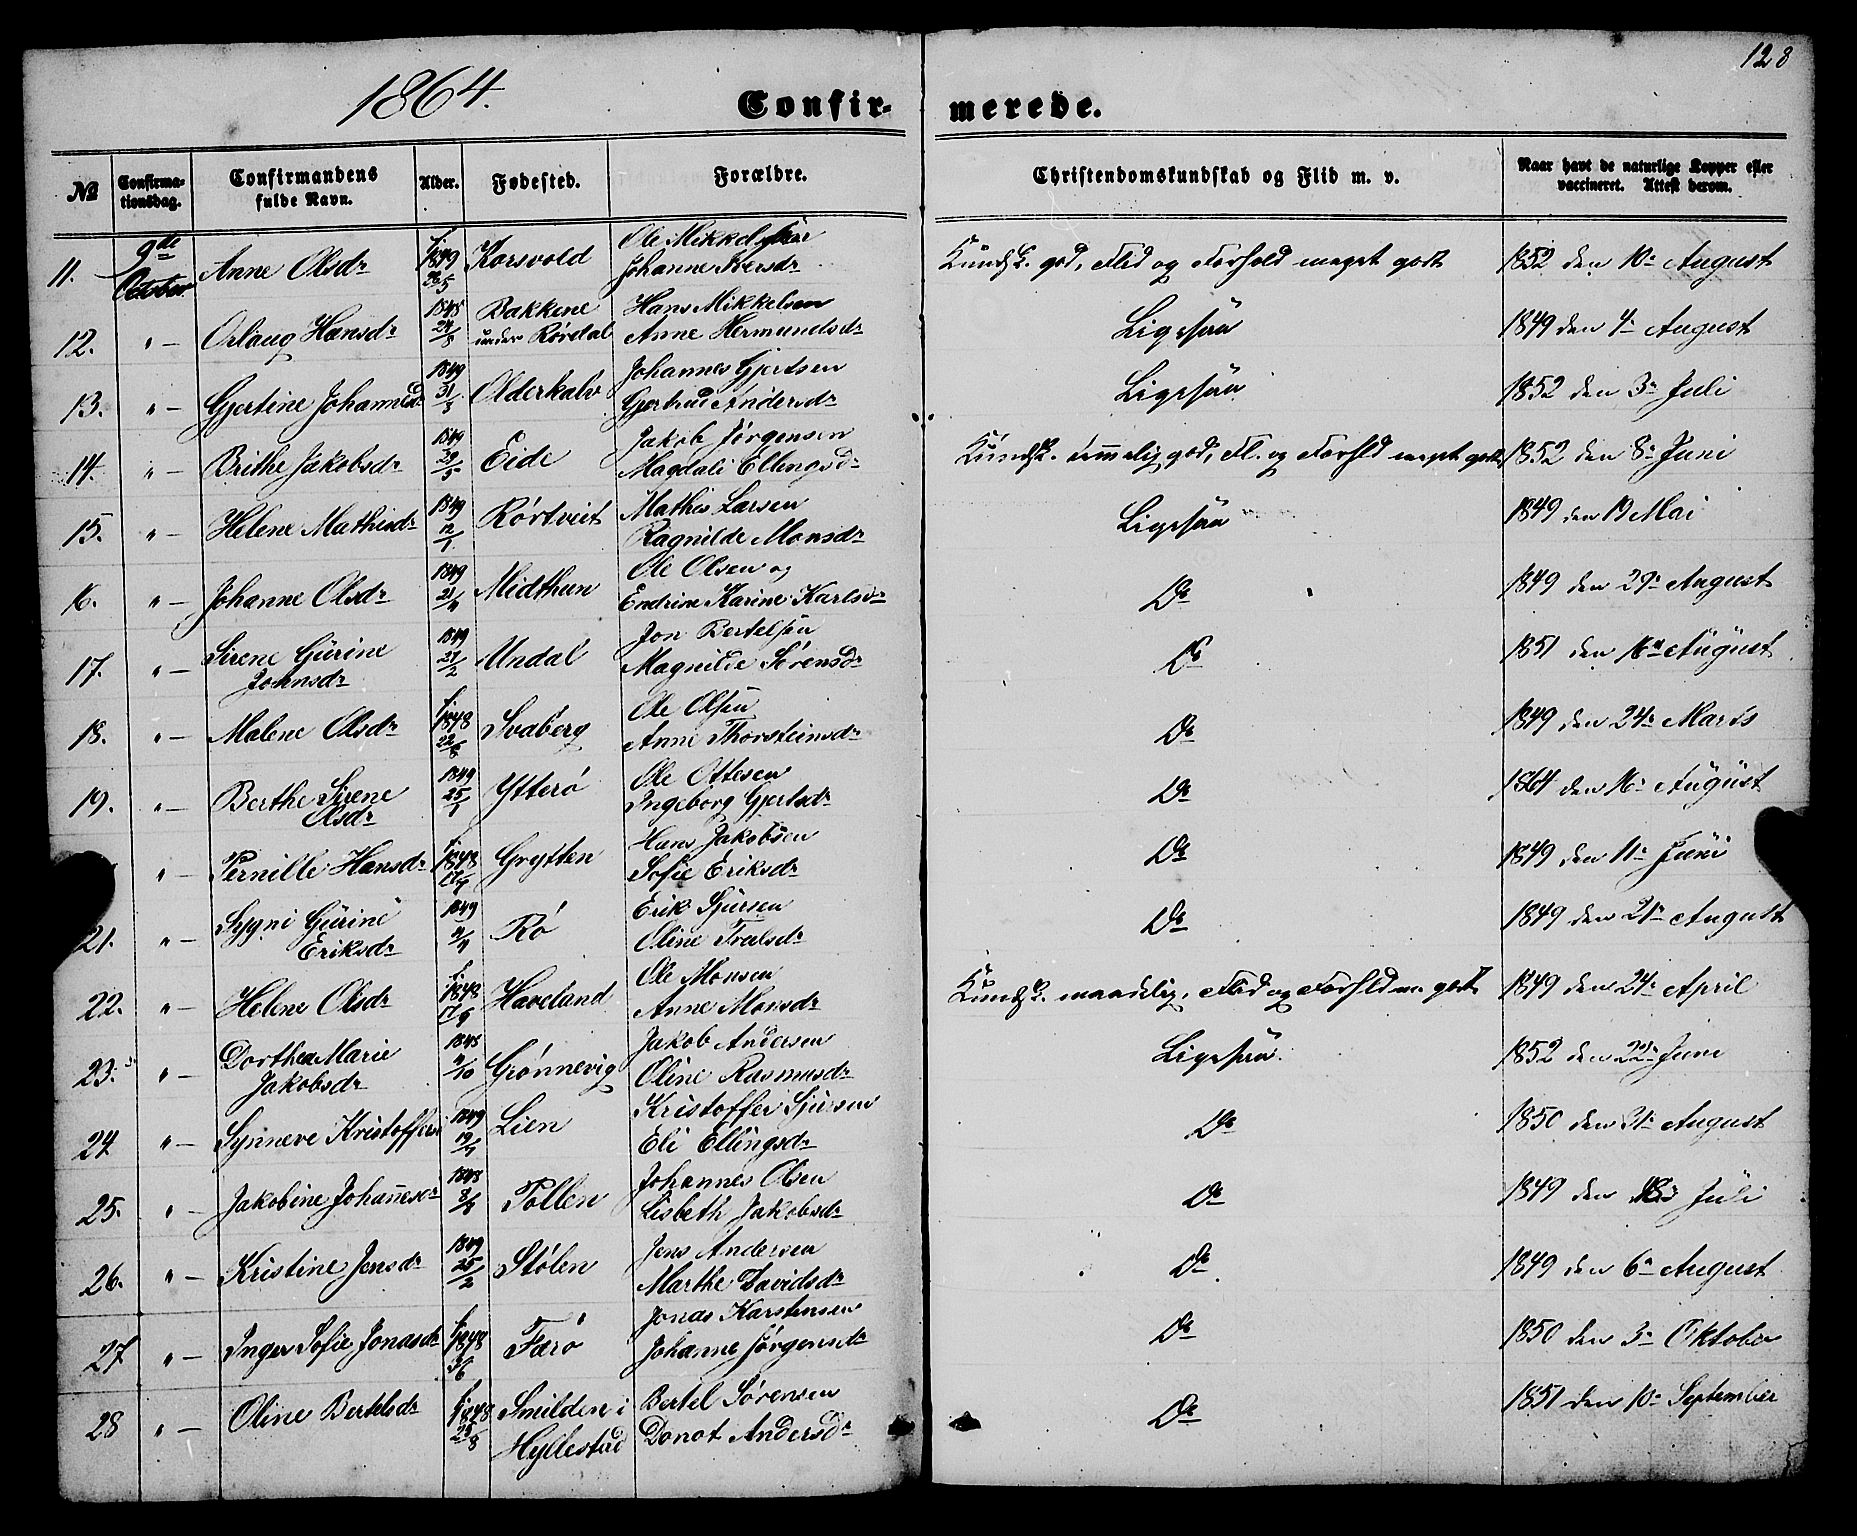 128
1864.
Confirmerede.
№ Confirmationsdag. Confirmandens fulde Navn. Alder. Fødested. Forældre. Christendomskundskab og Flid m. v. Naar havt de naturlige Kopper eller vaccineret. Attest derom.
11. 9de October Anne Olsdr f. 1849 26/5 Korsvold Ole Mikkelsen Johanne Iversdr Kundsk. god, Flid og Forhold meget godt 1852 den 10de August
12. " — Orlaug Hansdr 1848 Bakkene under Rørdal Hans Mikkelsen Anne Hermundsdr Ligesaa 1849 den 4de August
13. " — Gjertine Johannesd 1849 31/3 Olderkalv Johannes Gjertsen Gjertrud Andersdr Ligesaa 1852 den 3de Juli
14. " — Brithe Jakobsdr 1849 29/5 Eide Jakob Jørgensen Magdali Ellingsdr Kundsk. temmelig god, Fl. og Forhld meget godt 1852 den 8de Juni
15. " — Helene Mathisdr 1849 12/1 Rørtveit Mathis Larsen Ragnilde Monsdr Ligesaa 1849 den 19 Mai
16. " — Johanne Olsdr 1849 Midthun Ole Olsen og Endrine Karine Karlsdr Do 1849 den 29de August
17. " — Sirene Gurine Johnsdr 1849 27/2 Undal Jon Bertelsen Magnilde Sørensdr Do 1851 den 16de August
18. " — Malene Olsdr f. 1848 Svaberg Ole Olsen Anne Thorsteinsdr Do 1849 den 24de Marts
19. " — Berthe Sirene Olsdr 1849 25/1 Ytterø Ole Ottesen Ingeborg Gjertsdr Do 1864 den 16de August
" — Pernille Hansdr f. 1848 Grytten Hans Jakobsen Sofie Eriksdr Do 1849 den 11de Juni
21. " — Sygni Gurine Eriksdr 1849 Rø Erik Sjursen Oline Troelsdr Do 1849 den 21de August
22. " — Helene Olsdr f. 1848 17/9 Haveland Ole Monsen Anne Monsdr Kundsk. maadelig, Flid og Forhld m. godt 1849 den 24de April
23. " — Dorthea Marie Jakobsdr 1848 Grønnevig Jakob Andersen Oline Rasmusdr Ligesaa. 1852 den 22de Juni
24 " — Synneve Kristoffers 1849 19/1 Lien Kristoffer Sjursen Eli Ellingsdr Do 1850 den 31te August
25. " — Jakobine Johannesdr 1848 Pollen Johannes Olsen Lisbeth Jakobsdr Do 1849 den 18de Juli
26. " — Kristine Jensdr 1849 25/2 Stølen Jens Andersen Marthe Davidsdr Do 1849 den 6te August
27 " — Inger Sofie Jonasdr f. 1848 Færø Jonas Karstensen Johanne Jørgensdr Do 1850 den 3de Oktober
28 " — Oline Bertelsdr f. 1848 25/8 Smilden i Hyllestad Bertel Sørensen Donot Andersdr Do 1851 den 10de September